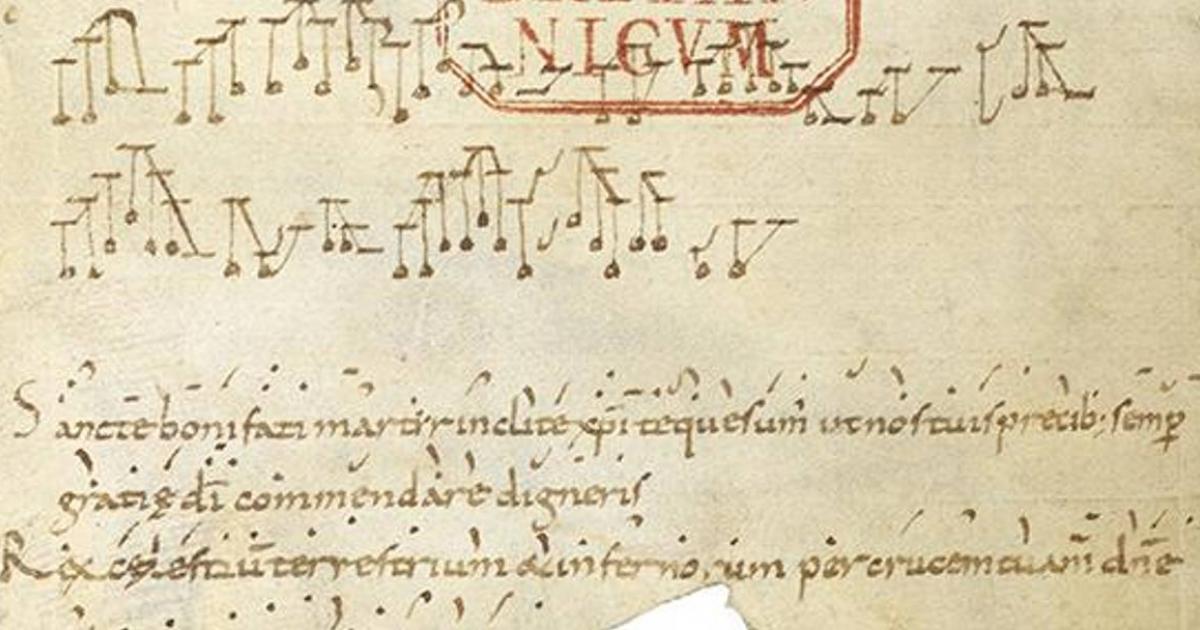 NICVM
Sancte bonifati martir inclite xpi te quesum ut nos tuis precib; semp
gratię di commendare digneris
Rex cęlestiū terrestrium & infernorum per crucem tuam dne